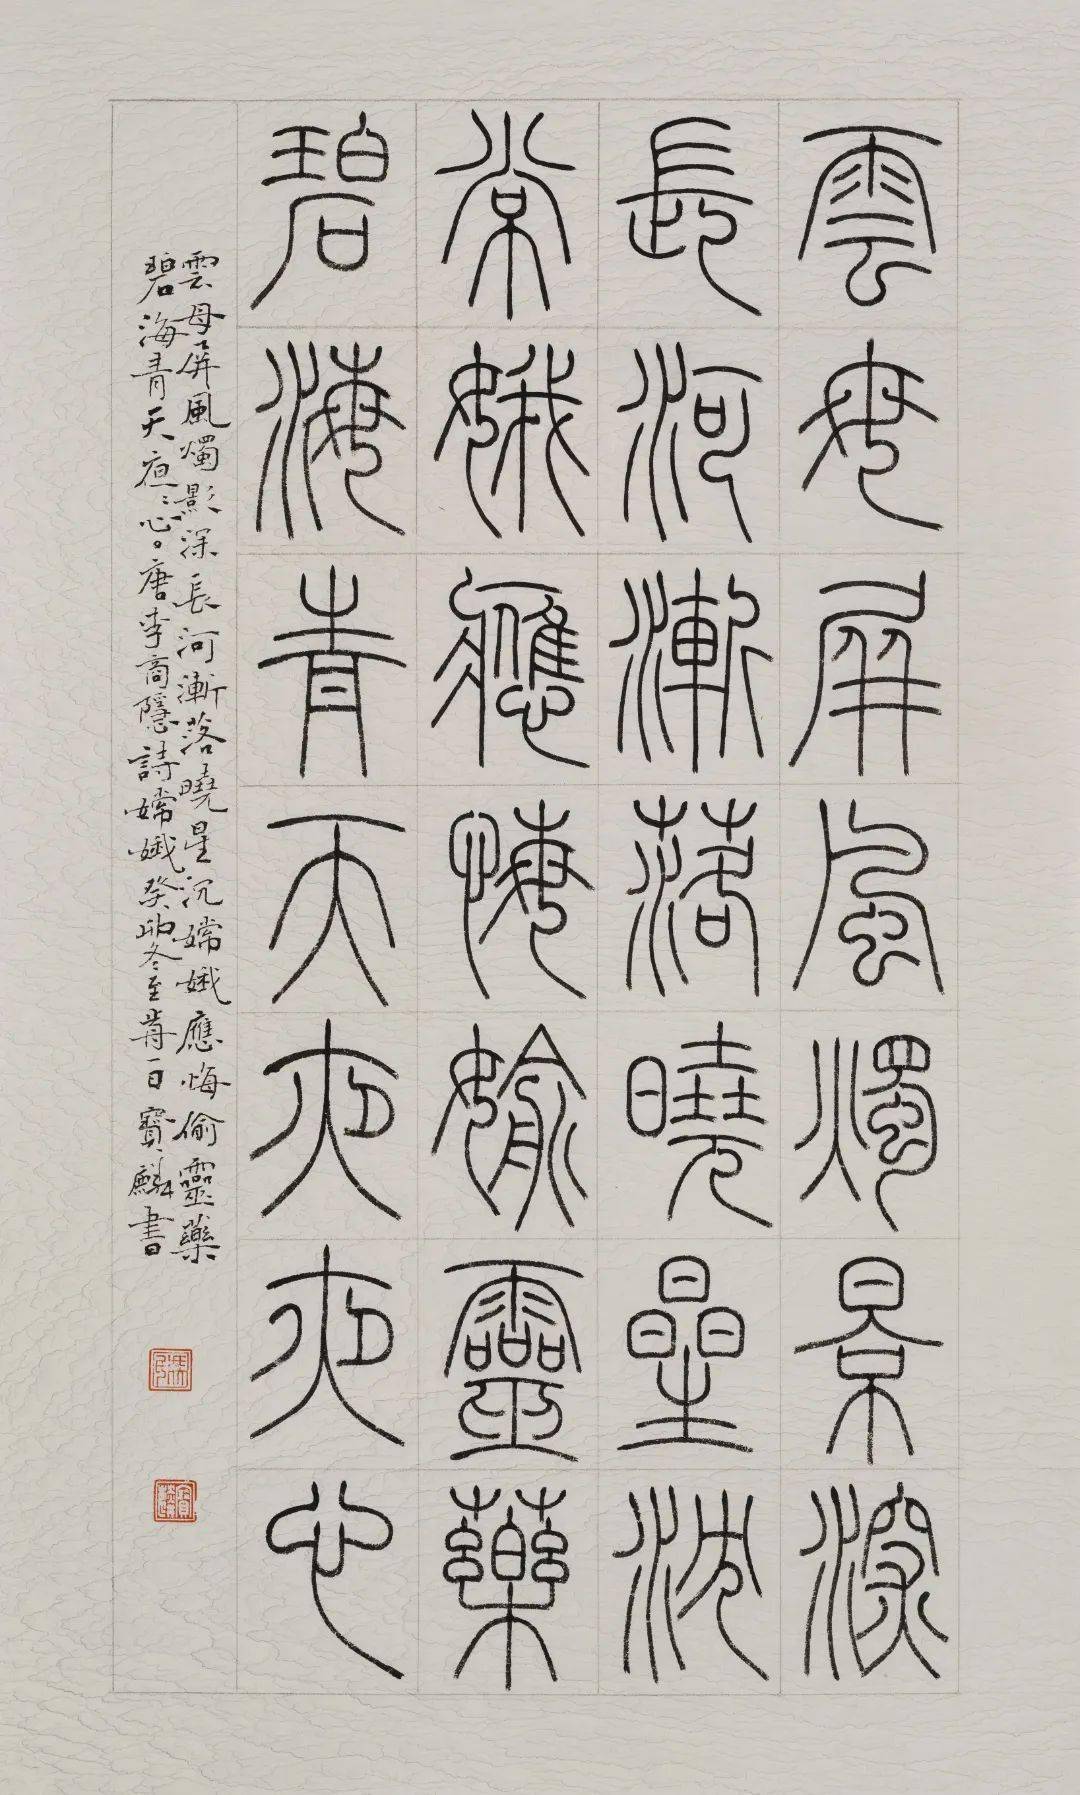 雲母屏風燭景深
長河漸落曉星沈
常娥應悔媮靈藥
碧海青天夜夜心
雲母屏風燭影深長河漸落曉星沉嫦娥應悔偷靈藥
碧海青天夜〻心。唐李商隱詩嫦娥癸卯冬至前一日寶麟書